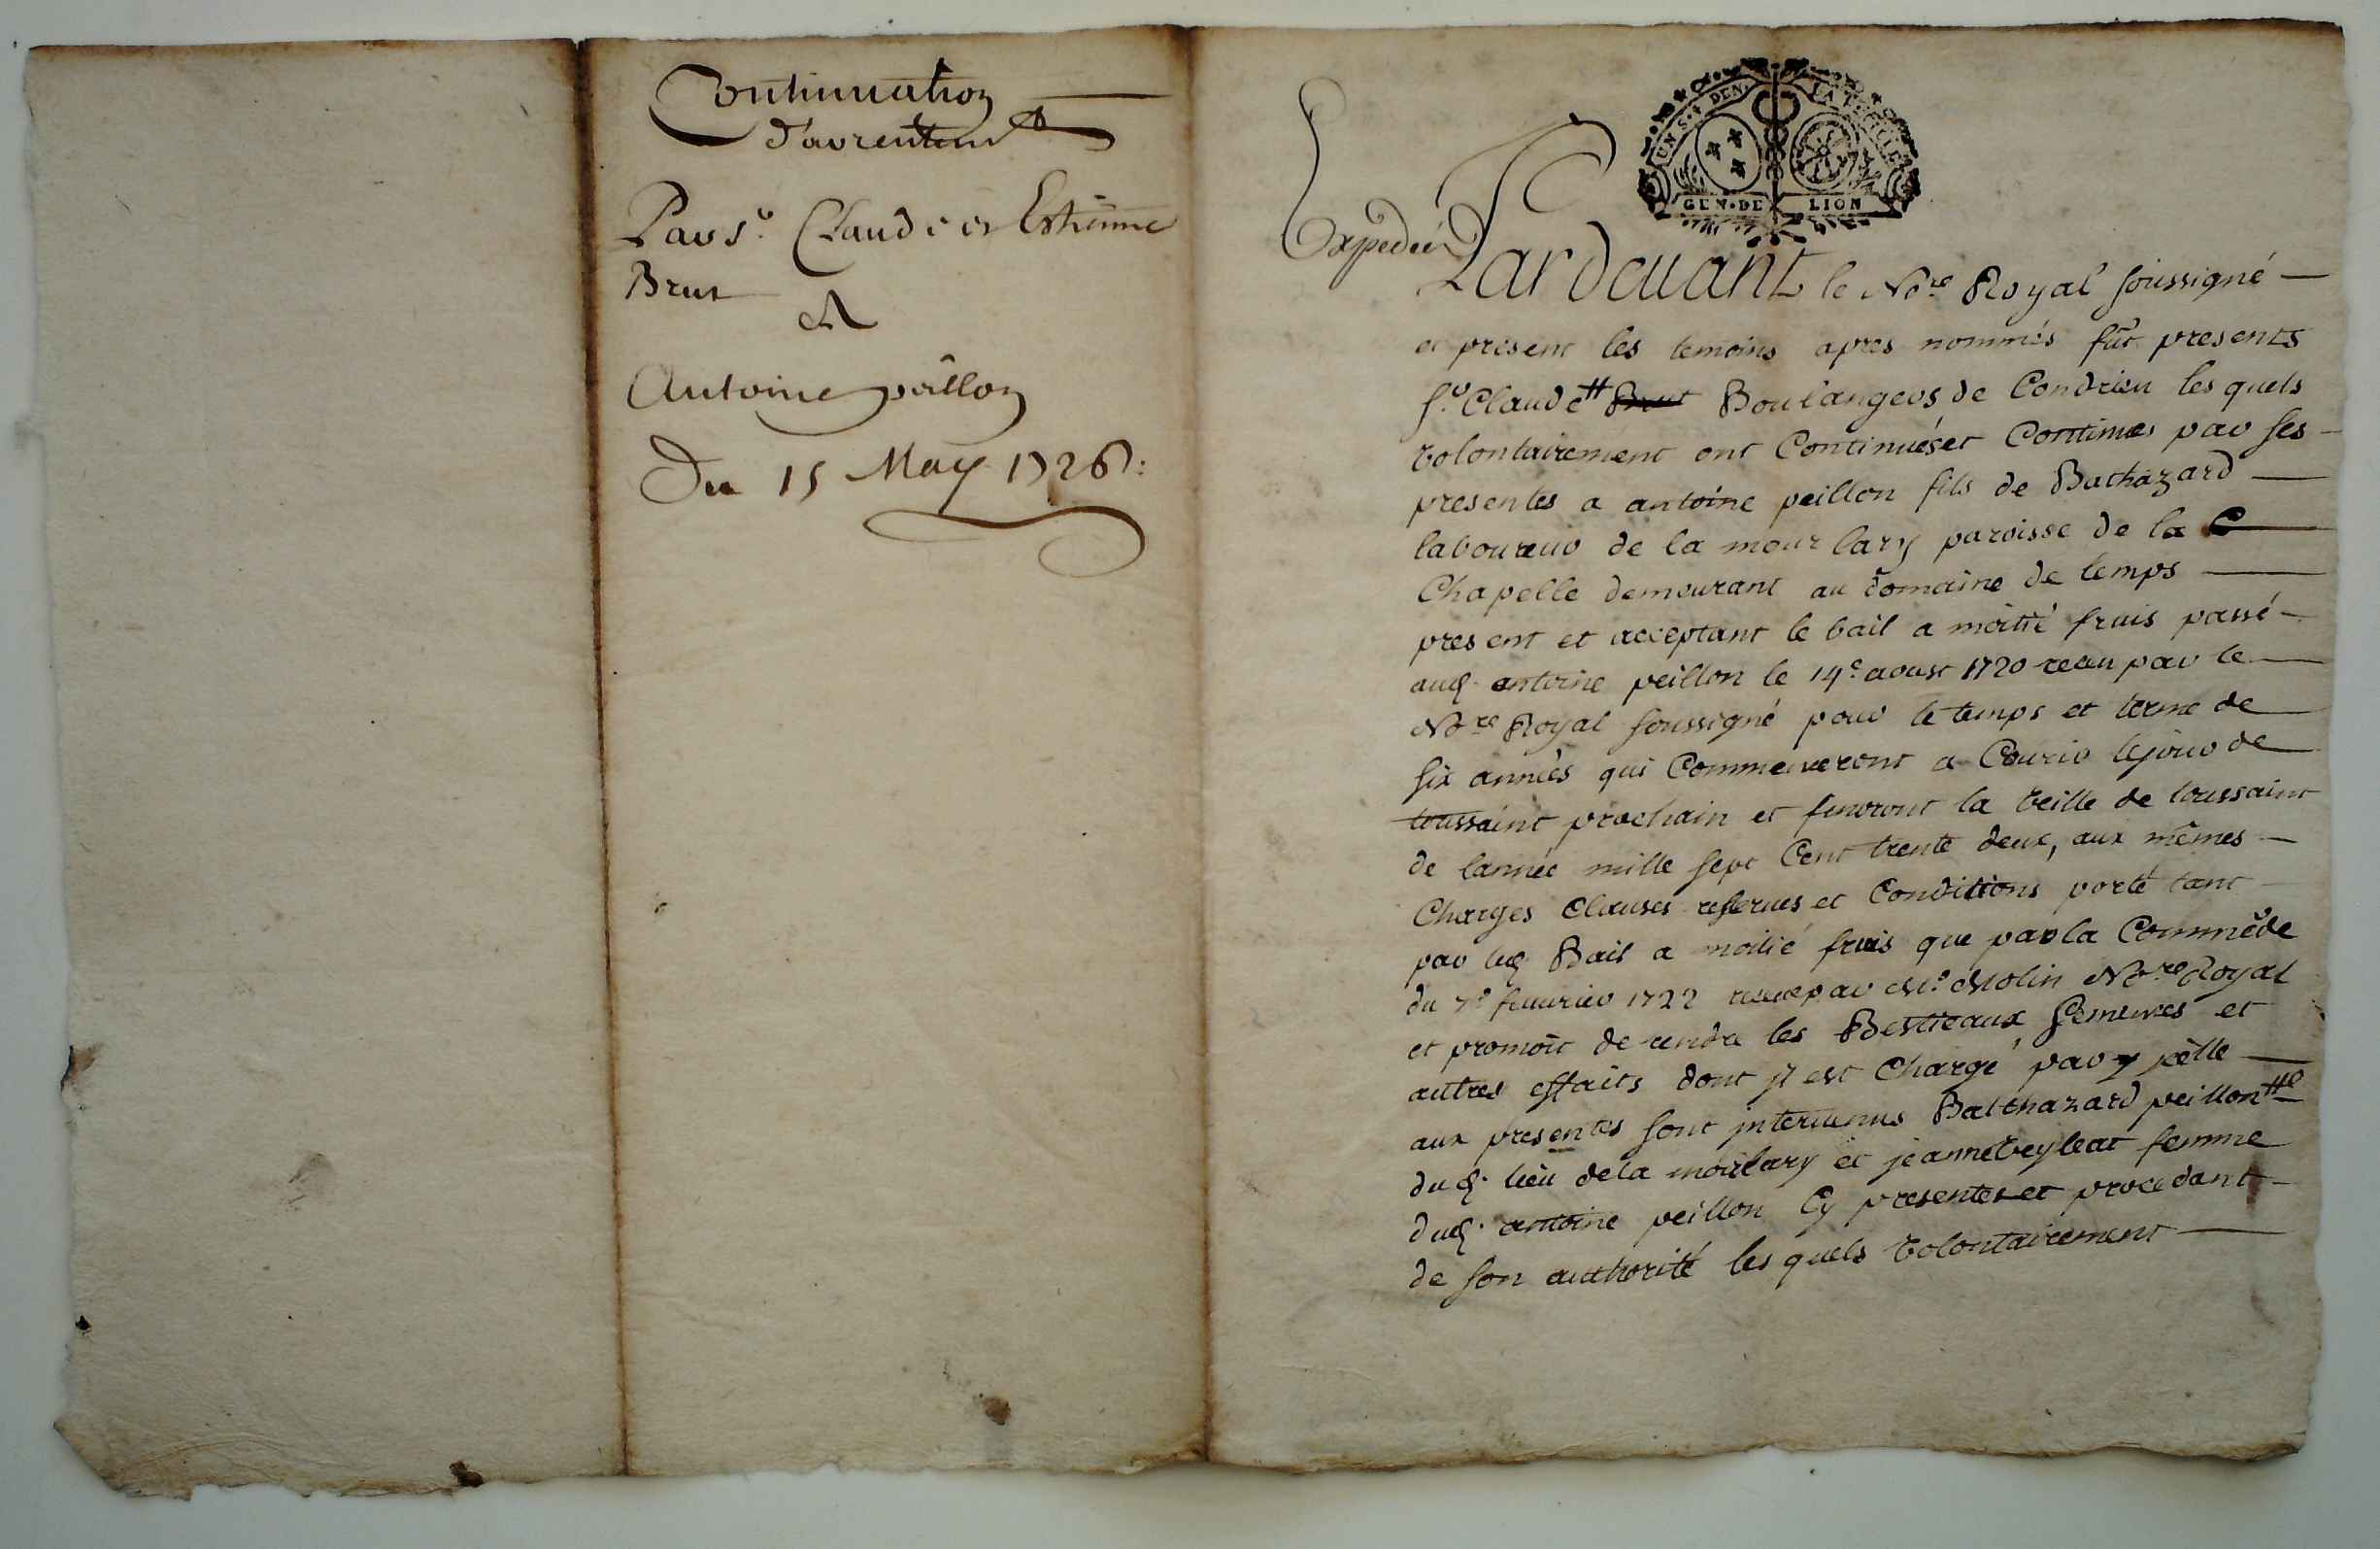 Continuation
d'arrentem^t
Par s.^r Claude et Estienne
Brut
et
Antoine peillon
Du 15 May 1726:
UN S. 4 DEN. LA FEUILLE
GEN. DE LION
Expedié
Pardevant le No.^re Royal soussigné
et present les temoins apres nommés fut presents
s.^r Claude # Brut Boulangers de Condrieu les quels
volontairement ont Continués et Continues par ses
presentes a antoine peillon fils de Bathazard
laboureur de la mourlary paroisse de la
Chapelle demeurant au domaine de temps
present et acceptant le bail a moitié fruis passé
aud. antoine peillon le 14.^e aoust 1720 receu par le
No.^re Royal soussigné pour le temps et terme de
six années qui Commenceront a Courir le jour de
toussaint prochain et finiront la veille de toussaint
de lannée mille sept Cent trente deux, aux mêmes
Charges Clauses reserves et Conditions porté tant
par led. Bail a moitié fruis que par la Commẽde
du 7.^e feuvrier 1722 receue par M.^e Molin No.^re Royal
et promoit de rendre les Bestieaux semences et
autres effaits dont jl est Chargé par jcelle
aux presentes sont jntervenus Balthazard peillon #
dud. lieu de la mourlary et jeanne veyleat femme
dud. antoine peillon Cy presentes et procedant
de son authorité les quels volontairement